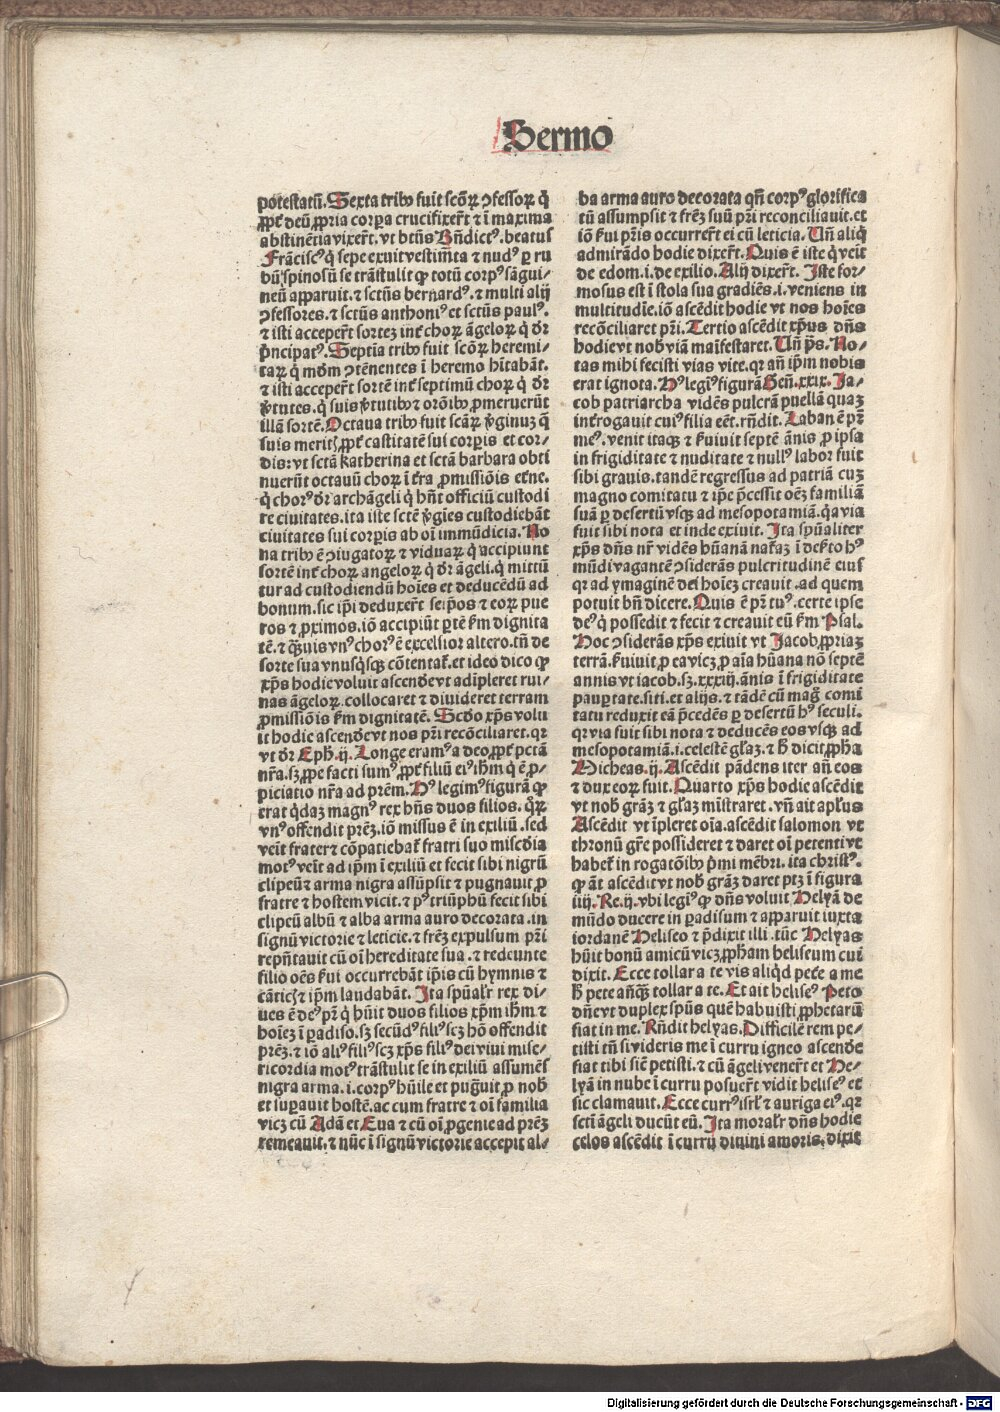 Sermo
potestatū. Sexta tribꝰ fuit scōꝝ ꝯfessoꝝ q̇
ꝓpt̄ deū ꝓpria corpa crucifixer̄t ⁊ ī maxima
abstinētia vixer̄t. vt btūs Bn̄dictꝰ. beatus
Frāciscꝰ q̇ sepe exuit vestimta ⁊ nudꝰ ꝑ ru
bū spinosū se trāstulit ꝙ totū corpꝰ sāgui-
neū apparuit. ⁊ sctūs bernardꝰ. ⁊ multi alij
ꝯfessores. ⁊ sctūs anthoniꝰ et sctūs paulꝰ.
⁊ isti acceper̄t sortez int̄ choꝝ āgeloꝝ q̇ dr̄
p̄ncipatꝰ. Septīa tribꝰ fuit scōꝝ heremi-
taꝝ q̇ mōm ꝯtēnentes ī heremo hītabāt.
⁊ isti acceper̄t sortē int̄ septimū choꝝ q̇ dr̄
v̓tutes. q̇ suis v̓tutibꝰ ⁊ orōibꝰ ꝓmeruerūt
illā sortē. Octaua tribꝰ fuit scāꝝ v̓ginuꝫ q̇
suis meritꝭ ꝓpt̄ castitatē sui corpis et cor-
dis: vt sctā katherina et sctā barbara obti
nuerūt octauū choꝝ ī t̄ra ꝓmissiōis et̄ne.
q̇ chorꝰ dr̄ archāgeli q̇ hn̄t officiū custodi
re ciuitates. ita iste sctē v̓gīes custodiebāt
ciuitates sui corpis ab oī immūdicia. No
na tribꝰ ē ꝯiugatoꝝ ⁊ viduaꝝ q̇ accipiunt
sortē int̄ choꝝ angeloꝝ q̇ dr̄ āgeli. q̇ mittū
tur ad custodiendū hoīes et deducēdū ad
bonum. sic ip̄i deduxer̄t seip̄os ⁊ eoꝝ pue
ros ⁊ ꝓximos. iō accipiūt ꝑtē fm dignita
tē. ⁊ q̄uis vnꝰ chorꝰ ē excelsior altero. tn̄ de
sorte sua vnusq̇sꝙ cōtentat̄. et ideo dico ꝙ
xp̄s hodie voluit ascendē vt adīpleret rui-
nas āgeloꝝ. collocaret ⁊ diuideret terram
ꝓmissiōis fm dignitatē. Scdo xp̄s volu
it hodie ascendē vt nos pr̄i recōciliaret. qꝛ
vt dr̄ Eph̄. ij. Longe eramꝰ a deo ꝓpt̄ pctā
nr̄a. sꝫ ꝓpe facti sumꝰ ꝓpt̄ filiū eiꝰ ihm̄ q̇ ē ꝓ-
piciatio nr̄a ad prēm. Hꝰ legimꝰ figurā ꝙ
erat q̇daꝫ magnꝰ rex hn̄s duos filios. q̄ꝝ
vnꝰ offendit prēꝫ. iō missus ē in exiliū. sed
veīt frater ⁊ cōpatiebat̄ fratri suo misc̄dia
motꝰ veīt ad ip̄m ī exiliū et fecit sibi nigrū
clipeū ⁊ arma nigra assūpsit ⁊ pugnauit ꝓ
fratre ⁊ hostem vicit. ⁊ pꝰ triūphū fecit sibi
clipeū albū ⁊ alba arma auro decorata. in
signū victorie ⁊ leticie. ⁊ fr̄eꝫ expulsum pr̄i
repn̄tauit cū oī hereditate sua. ⁊ redeunte
filio oēs s̓ui occurrebāt ip̄is cū hymnis ⁊
cātic̄ꝭ ⁊ ip̄m laudabāt. Ita spūalr̄ rex di-
ues ē deꝰ pr̄ q̇ hūit duos filios xp̄m ihm̄ ⁊
hoīeꝫ ī padiso. sꝫ secūdꝰ filiꝰ scꝫ hō offendit
prēꝫ. ⁊ iō aliꝰ filiꝰ scꝫ xp̄s filiꝰ dei viui mise-
ricordia motꝰ trāstulit se in exiliū assumēs
nigra arma. i. corpꝰ hūile et pug̃uit ꝓ nob̄
et suꝑauit hostē. ac cum fratre ⁊ oī familia
vicꝫ cū Adā et Eua ⁊ cū oī ꝓgenie ad prēꝫ
remeauit. ⁊ nūc ī signū victorie accepit al-
ba arma auro decorata qn̄ corpꝰ glorifica
tū assumpsit ⁊ fr̄eꝫ suū pr̄i reconciliauit. et
iō s̓ui pr̄is occurrer̄t ei cū leticia. Vn̄ aliq̇
admirādo hodie dixer̄t. Quis ē iste q̇ veīt
de edom. i. de exilio. Alij dixer̄t. Iste for-
mosus est ī stola sua gradiēs. i. veniens in
multitudīe. iō ascēdit hodie vt nos hoīes
recōciliaret pr̄i. Tertio ascēdit xp̄us dn̄s
hodie vt nob̄ viā maīfestaret. Vn̄ ps̄. No-
tas mihi fecisti vias vite. qꝛ an̄ ip̄m nobis
erat ignota. Hꝰ legiꝰ figurā Gen̄. xxix. Ja-
cob patriarcha vidēs pulcrā puellā quaꝫ
int̄rogauit cuiꝰ filia eēt. rn̄dit. Laban ē pr̄
meꝰ. venit itaqꝫ ⁊ s̓uiuit septē ānis ꝓ ipsa
in frigiditate ⁊ nuditate ⁊ nullꝰ labor fuit
sibi grauis. tandē regressus ad patriā cuꝫ
magno comitatu ⁊ ip̄e p̄cessit oēꝫ familiā
suā ꝑ desertū vsqꝫ ad mesopotamiā. q̇a via
fuit sibi nota et inde exiuit. Ita spūaliter
xp̄s dn̄s nr̄ vidēs hūanā nat̄aꝫ ī deſto hꝰ
mūdi vagantē ꝯsiderās pulcritudinē eius
qꝛ ad ymaginē dei hoīeꝫ creauit. ad quem
potuit bn̄ dicere. Quis ē pr̄ tuꝰ. certe ipse
deꝰ q̇ possedit ⁊ fecit ⁊ creauit eū fm Psal.
Hoc ꝯsiderās xp̄s exiuit vt Jacob ꝓpriaꝫ
terrā. s̓uiuit ꝓ ea vicꝫ ꝓ aīa hūana nō septē
annis vt iacob. sꝫ. xxxiij. ānis ī frigiditate
pauꝑtate. siti. et alijs. ⁊ tādē cū mag̃ comi
tatu reduxit eā p̄cedēs ꝑ desertū hꝰ seculi.
qꝛ via fuit sibi nota ⁊ deducēs eos vsqꝫ ad
mesopotamiā. i. celestē gl̄aꝫ. ⁊ h̄ dicit ꝓph̄a
Micheas. ij. Ascēdit pādens iter an̄ eos
⁊ dux eoꝝ fuit. Quarto xp̄s hodie ascēdit
vt nob̄ grāꝫ ⁊ gl̄aꝫ mīstraret. vn̄ ait apl̄us
Ascēdit vt īpleret oīa. ascēdit salomon vt
thronū gr̄e possideret ⁊ daret oī petenti vt
habet̄ in rogatōibꝰ p̄mi mēbri. ita christꝰ.
ꝙ āt ascēdit vt nob̄ grāꝫ daret ptꝫ ī figura
iiij. Re. ij. vbi legiꝰ ꝙ dn̄s voluit Helyā de
mūdo ducere in ꝑadisum ⁊ apparuit iuxta
iordanē Heliseo ⁊ p̄dixit illi. tūc Helyas
hūit bonū amicū vicꝫ ꝓph̄am heliseum cui
dixit. Ecce tollar a te vis aliq̇d pet̄e a me
h̄ pete an̄qꝫ tollar a te. Et ait heliseꝰ Peto
dn̄e vt duplex spūs quē habuisti ꝓphetarū
fiat in me. Rn̄dit helyas. Difficilē rem pe-
tisti tn̄ si videris me ī curru igneo ascende
fiat tibi sic̄ petisti. ⁊ cū āgeli vener̄t et He-
lyā in nube ī curru posuer̄t vidit heliseꝰ et
sic clamauit. Ecce currꝰ isrl̄ ⁊ auriga eiꝰ. qꝛ
sctī āgeli ducūt eū. Ita moralr̄ dn̄s hodie
celos ascēdit ī curru diuini amoris. dixit
Digitalisierung gefördert durch die Deutsche Forschungsgemeinschaft - DFG